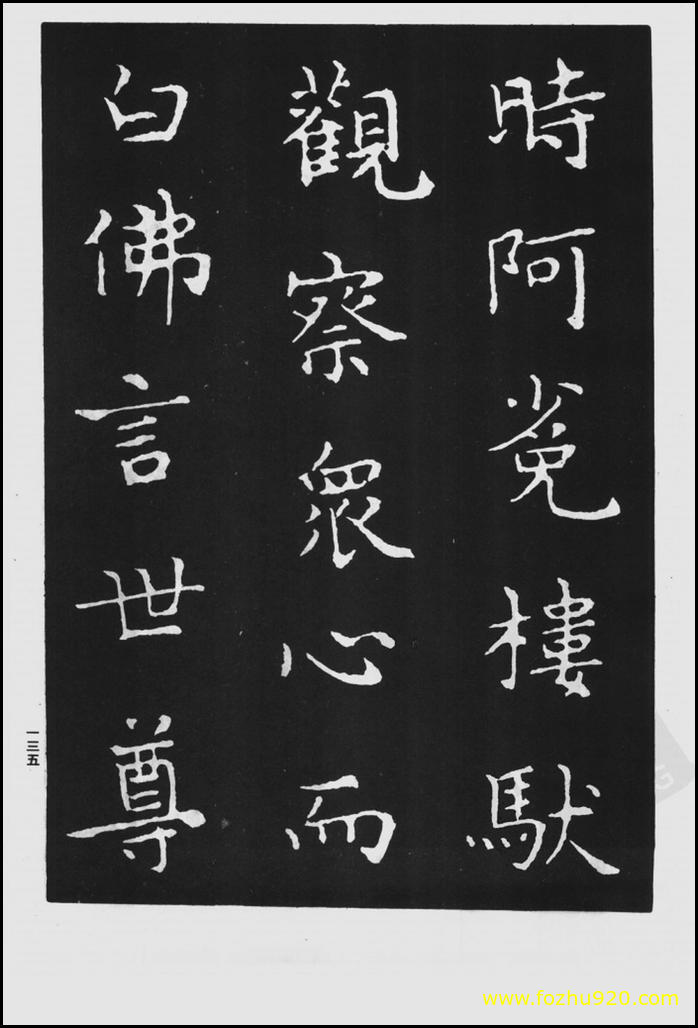 時阿㝹樓馱
觀察眾心而
白佛言世尊
一三五
www.fozhu920.com